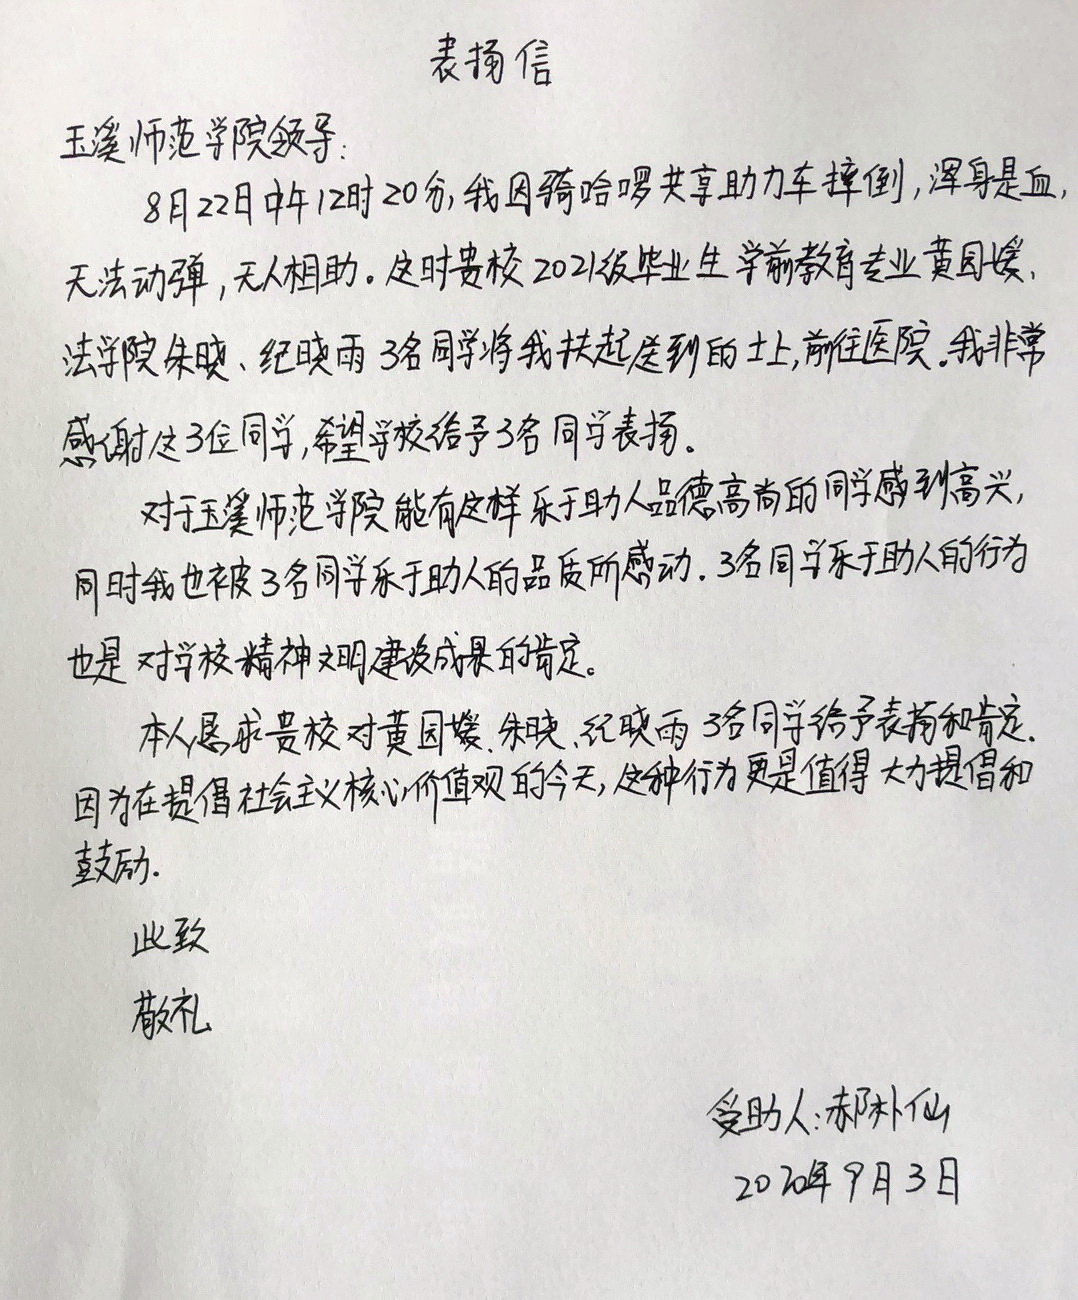 表扬信
玉溪师范学院领导:
8月22日中午12时20分,我因骑哈啰共享助力车摔倒,浑身是血,
无法动弹,无人相助。这时贵校2021级毕业生学前教育专业黄园媛、
法学院朱晓、纪晓雨3名同学将我扶起送到的士上,前往医院.我非常
感谢这3位同学,希望学校给予3名同学表扬。
对于玉溪师范学院能有这样乐于助人品德高尚的同学感到高兴,
同时我也被3名同学乐于助人的品质所感动.3名同学乐于助人的行为
也是对学校精神文明建设成果的肯定。
本人恳求贵校对黄园媛、朱晓、纪晓雨3名同学给予表扬和肯定.
因为在提倡社会主义核心价值观的今天,这种行为更是值得大力提倡和
鼓励.
此致
敬礼
受助人:郝朴仙
2020年9月3日